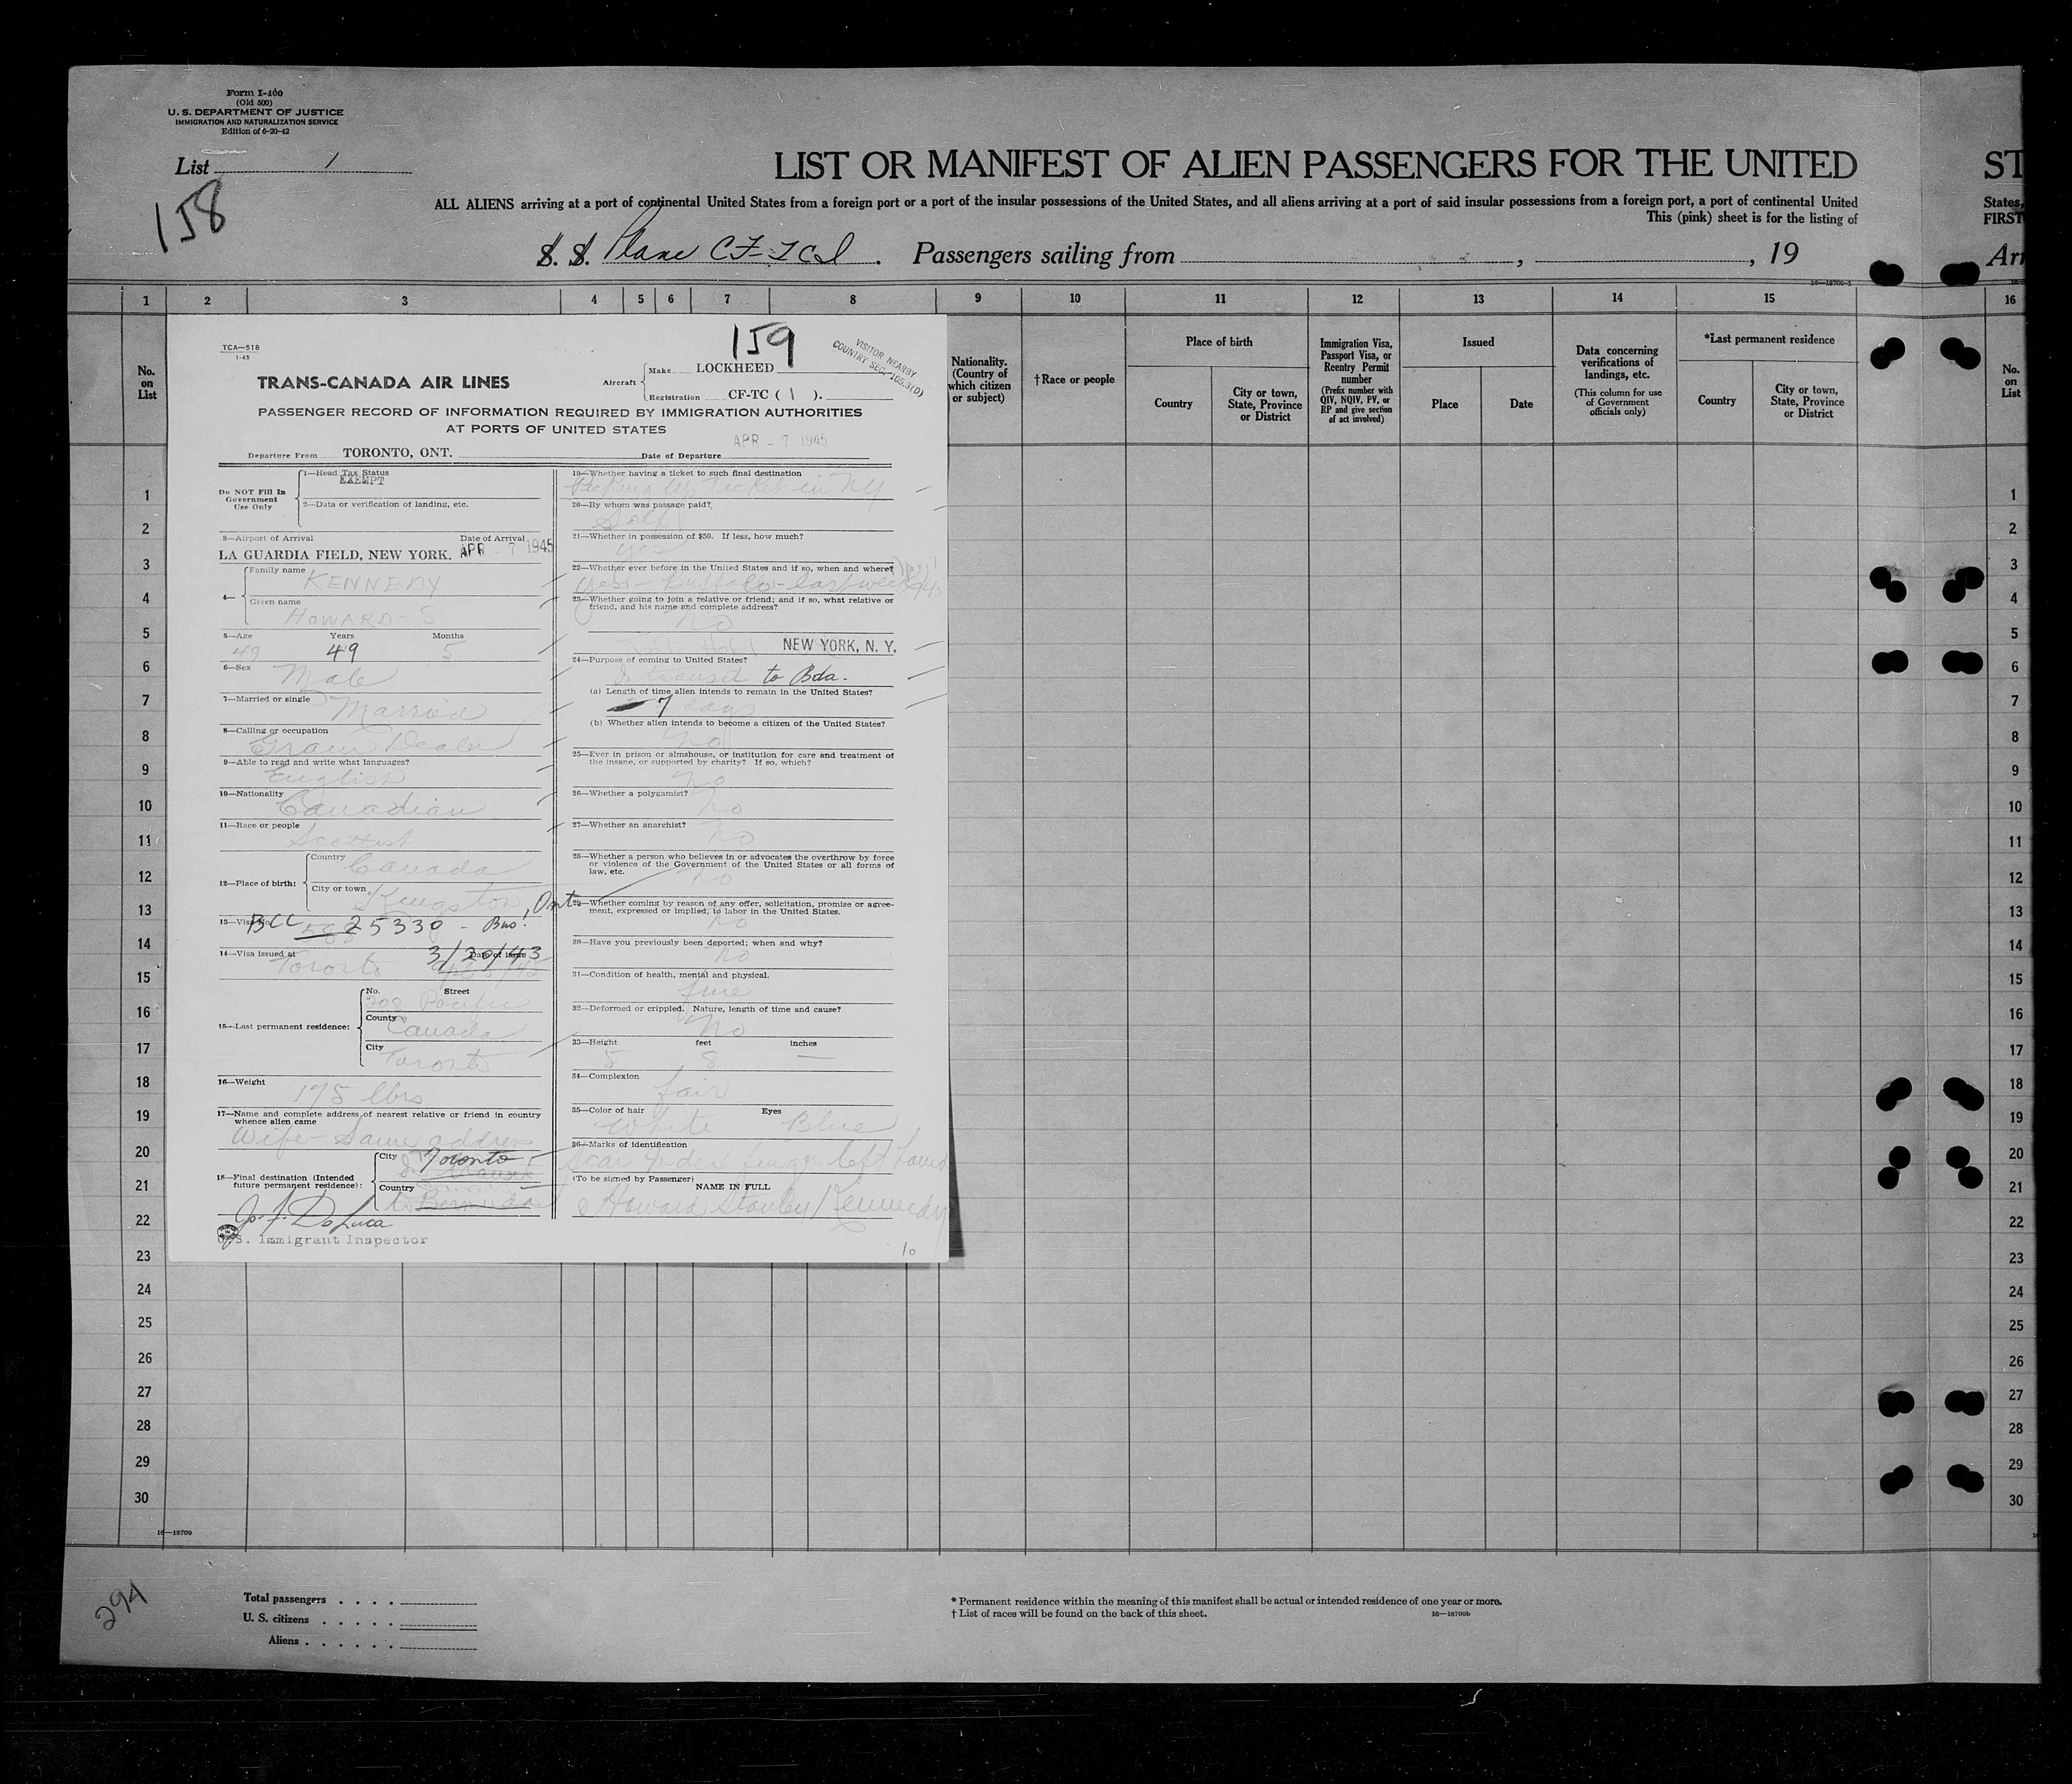 Form I-460
(Old 500)
U. S. DEPARTMENT OF JUSTICE
IMMIGRATION AND NATURALIZATION SERVICE
Edition of 6-20-42
List 1
158
LIST OR MANIFEST OF ALIEN PASSENGERS FOR THE UNITED
ST
ALL ALIENS arriving at a port of continental United States from a foreign port or a port of the insular possessions of the United States, and all aliens arriving at a port of said insular possessions from a foreign port, a port of continental United
States,
This (pink) sheet is for the listing of
FIRST
S. S. Plane Passengers sailing from , , 19
Arr
1 2 3 4 5 6 7 8 9 10 11 12 13 14 15 16
No. on List
Nationality. (Country of which citizen or subject)
† Race or people
Place of birth
Country
City or town, State, Province or District
Immigration Visa, Passport Visa, or Reentry Permit number
(Prefix number with QIV, NQIV, PV, or RP and give section of act involved)
Issued
Place
Date
Data concerning verifications of landings, etc.
(This column for use of Government officials only)
*Last permanent residence
Country
City or town, State, Province or District
No. on List
TCA—518
1-45
159
VISITOR NEARBY
COUNTRY SEC. 105.3(D)
TRANS-CANADA AIR LINES
Aircraft
Make LOCKHEED
Registration CF-TC ( 1 ).
PASSENGER RECORD OF INFORMATION REQUIRED BY IMMIGRATION AUTHORITIES
AT PORTS OF UNITED STATES
APR - 7 1945
Departure From TORONTO, ONT. Date of Departure
Do NOT Fill In Government Use Only
1—Head Tax Status
EXEMPT
2—Data or verification of landing, etc.
3—Airport of Arrival Date of Arrival
LA GUARDIA FIELD, NEW YORK. APR - 7 1945
4— Family name
KENNEDY
Given name
HOWARD-S
5—Age Years Months
49 49 5
6—Sex
Male
7—Married or single
Married
8—Calling or occupation
Grain Dealer
9—Able to read and write what languages?
English
10—Nationality
Canadian
11—Race or people
Scottish
12—Place of birth:
Country
Canada
City or town
Kingston, Ont
13—Visa No.
BCC 25330 - Buo.
14—Visa issued at Date of issue
Toronto 3/20/43
15—Last permanent residence:
No. Street
208 Pacific
County
Canada
City
Toronto
16—Weight
175 lbrs
17—Name and complete address of nearest relative or friend in country whence alien came
Wife - Same address
18—Final destination (Intended future permanent residence):
City
Toronto
Country
Bermuda
Jo. F. DeLuca
U.S. Immigrant Inspector
19—Whether having a ticket to such final destination
Picking up ticket in NY
20—By whom was passage paid?
Self
21—Whether in possession of $50. If less, how much?
yes
22—Whether ever before in the United States and if so, when and where?
yes - Buffalo - last week
23—Whether going to join a relative or friend; and if so, what relative or friend, and his name and complete address?
No
Hotel NEW YORK, N. Y.
24—Purpose of coming to United States?
transit to Bda.
(a) Length of time alien intends to remain in the United States?
7 days
(b) Whether alien intends to become a citizen of the United States?
No
25—Ever in prison or almshouse, or institution for care and treatment of the insane, or supported by charity? If so, which?
No
26—Whether a polygamist?
No
27—Whether an anarchist?
No
28—Whether a person who believes in or advocates the overthrow by force or violence of the Government of the United States or all forms of law, etc.
No
29—Whether coming by reason of any offer, solicitation, promise or agreement, expressed or implied, to labor in the United States.
No
30—Have you previously been deported; when and why?
No
31—Condition of health, mental and physical.
fine
32—Deformed or crippled. Nature, length of time and cause?
No
33—Height feet inches
5 8 —
34—Complexion
fair
35—Color of hair Eyes
White Blue
36—Marks of identification
Scar index finger left hand
(To be signed by Passenger)
NAME IN FULL
Howard Stanley Kennedy
10
1 1
2 2
3 3
4 4
5 5
6 6
7 7
8 8
9 9
10 10
11 11
12 12
13 13
14 14
15 15
16 16
17 17
18 18
19 19
20 20
21 21
22 22
23 23
24 24
25 25
26 26
27 27
28 28
29 29
30 30
16—18709
294
Total passengers
U. S. citizens
Aliens
* Permanent residence within the meaning of this manifest shall be actual or intended residence of one year or more.
† List of races will be found on the back of this sheet.
16—18709b